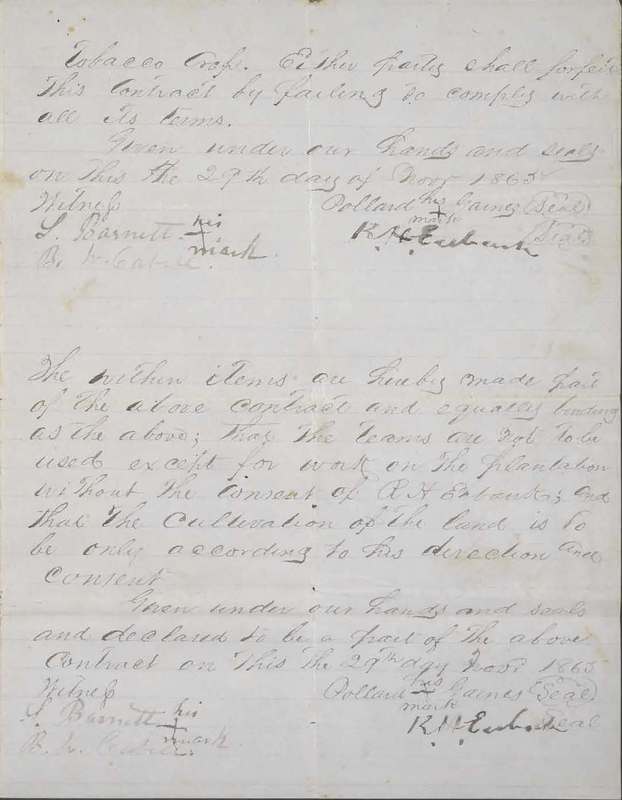 Tobacco crop. Either party shall forfeit
This contract by failing to comply with
all its terms.
Given under our hands and seals
on This the 29th day of Novr 1865
Witness Pollard his + mark Gaines (Seal)
L. Barnett his + mark R. H. Eubank (Seal)
B. W.
The within items are hereby made part
of The above contract and equally binding
as the above; That The teams are not to be
used except for work on The plantation
without The consent of R H Eubank; and
that The cultivation of the land is to
be only according to his direction and
consent
Given under our hands and seals
and declared to be a part of The above
Contract on This the 29th day Novr 1865
Witness Pollard his + mark Gaines (Seal)
L. Barnett his + mark R. H. Eubank Seal
B. W.